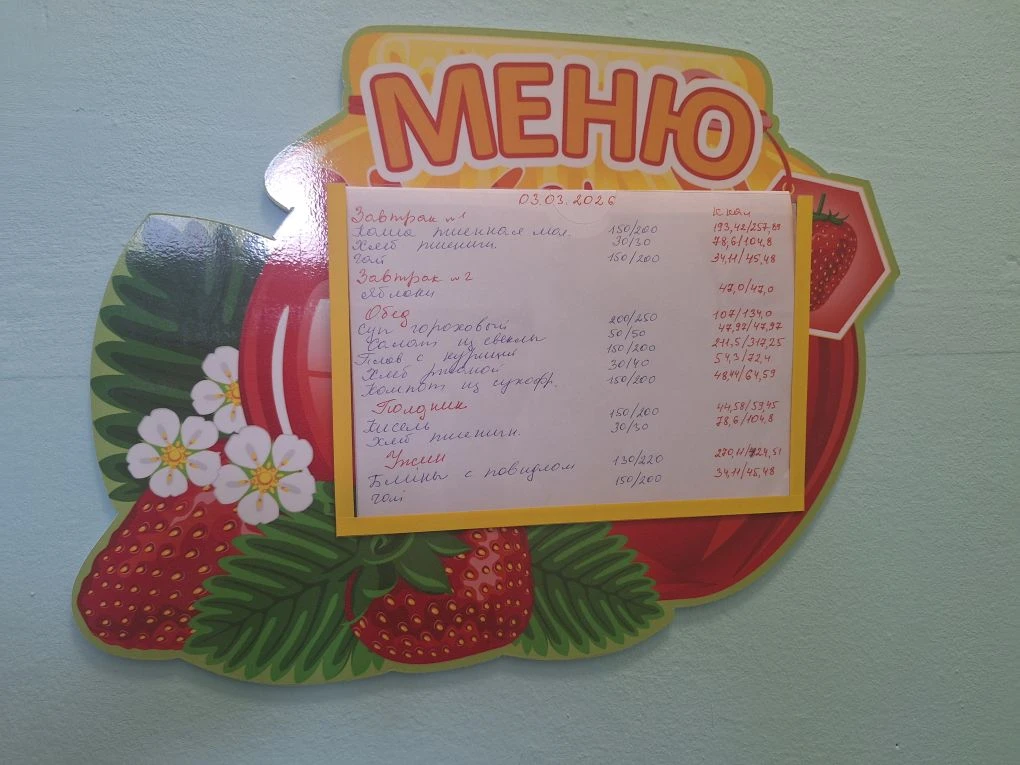 МЕНЮ
03.03.2026
Завтрак №1 ккал
Каша пшенная мол. 150/200 193,42/257,89
Хлеб пшеничн. 30/30 78,6/104,8
Чай 150/200 34,11/45,48
Завтрак №2
Яблоки 47,0/47,0
Обед
Суп гороховый 200/250 107/134,0
Салат из свеклы 50/50 47,97/47,97
Плов с курицей 150/200 211,5/317,25
Хлеб ржаной 30/40 54,3/72,4
Компот из сухофр. 150/200 48,44/64,59
Полдник
Кисель 150/200 44,58/59,45
Хлеб пшеничн. 30/30 78,6/104,8
Ужин
Блины с повидлом 130/220 270,11/424,51
Чай 150/200 34,11/45,48